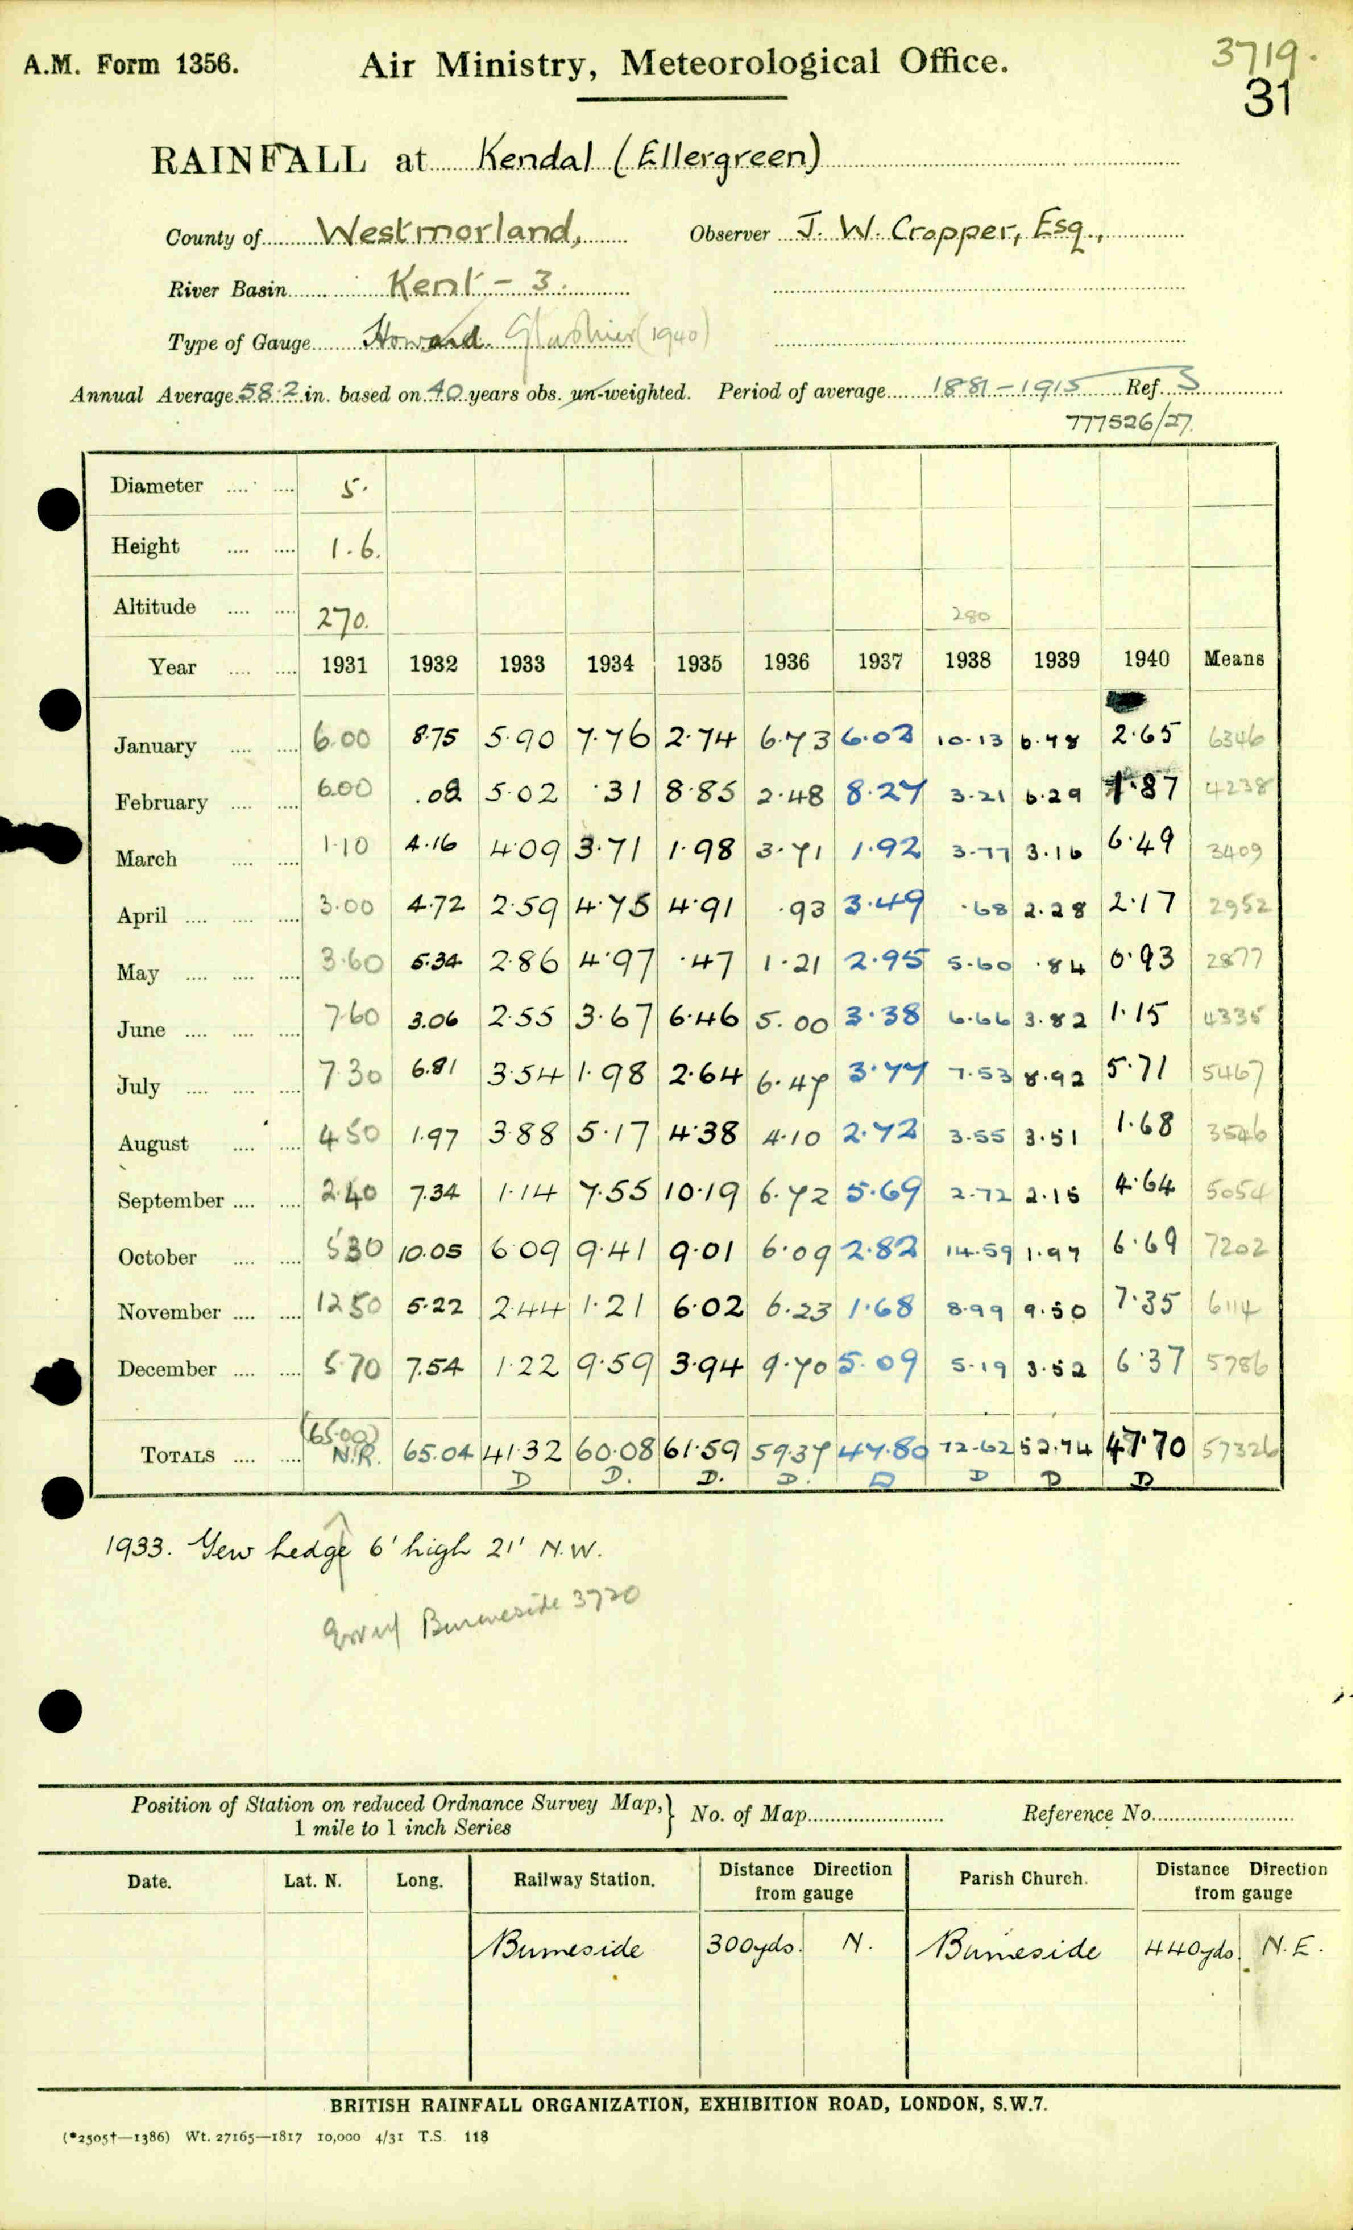 A.M. Form 1356. Air Ministry, Meteorological Office. 3719.
31
RAINFALL at Kendal (Ellergreen)
County of Westmorland, Observer J. W. Cropper, Esq.,
River Basin Kent - 3.
Type of Gauge Howard Glashier (1940)
Annual Average 58.2 in. based on 40 years obs. un-weighted. Period of average 1881-1915 Ref. S
777526/27.
Diameter .... .... 5.
Height .... .... 1.6.
Altitude .... .... 270. 280
Year .... .... 1931 1932 1933 1934 1935 1936 1937 1938 1939 1940 Means
January .... .... 6.00 8.75 5.90 7.76 2.74 6.73 6.03 10.13 6.78 2.65 6346
February .... .... 6.00 .08 5.02 .31 8.85 2.48 8.27 3.21 6.29 1.87 4238
March .... .... 1.10 4.16 4.09 3.71 1.98 3.71 1.92 3.77 3.16 6.49 3409
April .... .... .... 3.00 4.72 2.59 4.75 4.91 .93 3.49 .68 2.28 2.17 2952
May .... .... .... 3.60 5.34 2.86 4.97 .47 1.21 2.95 5.60 .84 0.93 2877
June .... .... .... 7.60 3.06 2.55 3.67 6.46 5.00 3.38 6.66 3.82 1.15 4335
July .... .... .... 7.30 6.81 3.54 1.98 2.64 6.47 3.77 7.53 8.92 5.71 5467
August .... .... 4.50 1.97 3.88 5.17 4.38 4.10 2.72 3.55 3.51 1.68 3546
September .... .... 2.40 7.34 1.14 7.55 10.19 6.72 5.69 2.72 2.15 4.64 5054
October .... .... 5.30 10.05 6.09 9.41 9.01 6.09 2.82 14.59 1.97 6.69 7202
November .... .... 12.50 5.22 2.44 1.21 6.02 6.23 1.68 8.99 9.50 7.35 6114
December .... .... 5.70 7.54 1.22 9.59 3.94 9.70 5.09 5.19 3.52 6.37 5786
(65.00)
TOTALS .... .... N.R. 65.04 41.32 60.08 61.59 59.37 47.80 72.62 52.74 47.70 57326
D D. D. D. D D D D
1933. Yew hedge 6' high 21' N.W.
Burneside 3720
Position of Station on reduced Ordnance Survey Map, } No. of Map Reference No.
1 mile to 1 inch Series
Date. Lat. N. Long. Railway Station. Distance Direction from gauge Parish Church. Distance Direction from gauge
Burneside 300yds. N. Burneside 440yds. N.E.
BRITISH RAINFALL ORGANIZATION, EXHIBITION ROAD, LONDON, S.W.7.
(*2505†—1386) Wt. 27165—1817 10,000 4/31 T.S. 118